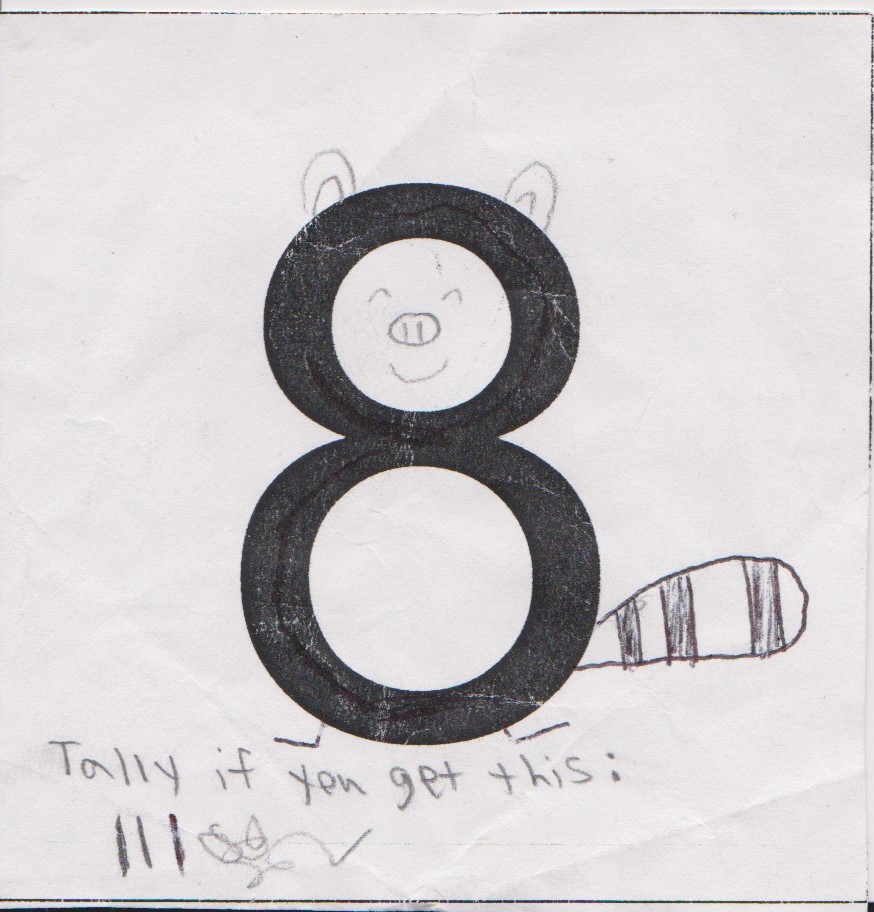 8
Tally if you get this:
|||